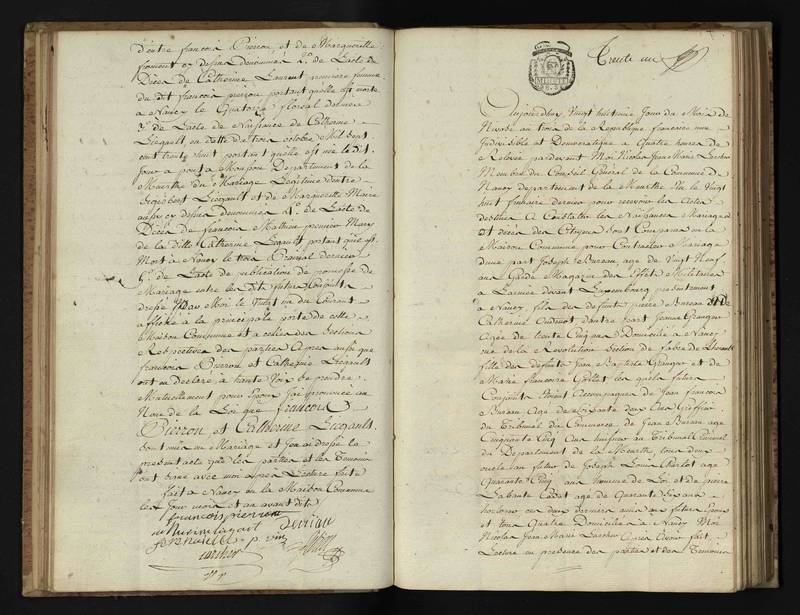 d'entre françois Pierron et de Marguerite
froment cy dessus dénommés 2.º de L'acte de
Décès de Catherine Laurent première femme
du dit françois pierron portant qu'elle est morte
a Nancy le Quatorze floreal dernier
3.º de L'acte de Naissance de Catherine
Liegault en datte du trois octobre Mil sept
cent trente huit portant qu'elle est née le dit
jour a pont a Mousson Département de la
Meurthe du Mariage Légitime d'entre
Liegault et de Marguerite Maire
aussy cy dessus dénommés 4.º de L'acte de
Décès de françois Mathieu premier Mary
de la ditte Catherine Liegault portant qu'il est
Mort a Nancy le trois Prairial dernier
5.º de L'acte de publication de promesse de
Mariage entre les dits futurs Conjoints
dressé par Moi le Vingt un du Courant
affiché à la principale porte de cette
Maison Commune et a celles des Sections
Respectives des parties Apres aussi que
francois Pierron et Catherine Liegault
ont eu declaré à haute Voix se prendre
Mutuellement pour Epoux J'ai prononcé au
Nom de la Loi que françois
Pierron et Catherine Liegault
sont unis en Mariage et j'en ai dressé le
présent acte que les parties et les Temoins
ont signé avec moi après Lecture faite
fait a Nancy en la Maison Commune
les Jour mois et an avant dits
francois pierron
Larcher
Trente un
Aujourdhuy Vingt huitième Jour du Mois de
Nivose an trois de la République francaise une
Indivisible et Democratique a Quatre heures de
Relevée pardevant Moi Nicolas Jean Marie Larcher
Membre du Conseil Général de la Commune de
Nancy departement de la Meurthe élu le Vingt
huit frimaire dernier pour recevoir les Actes
destinés a Constater les Naissances Mariages
et décès des Citoyens Sont Comparus en la
Maison Commune pour Contracter Mariage
d'une part Joseph Bureau agé de Vingt Neuf
ans Garde Magazin des Effets Militaires
a L'armée devant Luxembourg présentement
a Nancy fils des defunts pierre Bureau et de
Catherine Oudinot, d'autre part Jeanne Granger
Agée de trente Cinq ans Domiciliée a Nancy
rue de la Revolution Section de
fille des defunts Jean Baptiste Granger et de
Marie francoise Gollet les quels futurs
Conjoints étoient accompagnés de Jean francois
Bureau Agé de Soixante deux ans Greffier
du Tribunal du Commerce de Jean Bureau agé
Cinquante Cinq ans huissier au Tribunal Criminel
du Département de la Meurthe tous deux
oncles au futur de Joseph Louis Charlot agé
Quarante Cinq ans homme de Loi et de pierre
Labante Cadet agé de Quarante Six ans
horloger ces deux derniers amis aux futurs Epoux
et tous Quatre Domiciliés a Nancy Moi
Nicolas Jean Marie Larcher Après Avoir fait
Lecture en présence des parties et des Temoins